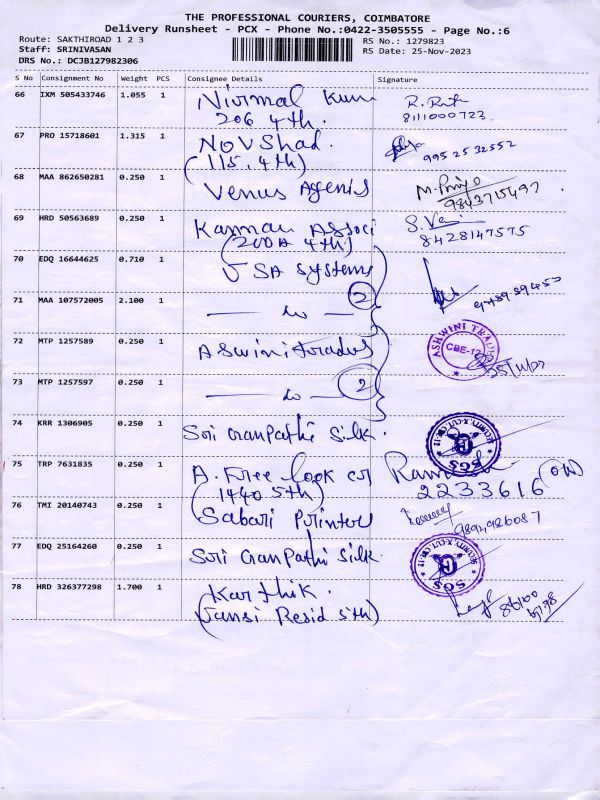 THE PROFESSIONAL COURIERS, COIMBATORE
Delivery Runsheet - PCX - Phone No.:0422-3505555 - Page No.:6
Route: SAKTHIROAD 1 2 3
RS No.: 1279823
Staff: SRINIVASAN
RS Date: 25-Nov-2023
DRS No.: DCJB127982306
S No Consignment No Weight PCS Consignee Details Signature
66 IXM 505433746 1.055 1 Nirmal Kum
206 4th.
8111000723
67 PRO 15718601 1.315 1 NOVShad.
(115, 4th) 9952532552
68 MAA 862650281 0.250 1 Venus Agenis M. Priya
9843715497
69 HRD 50563689 0.250 1 Kannan Associ
(200A 4th) 8428147575
70 EDQ 16644625 0.710 1 JSA Systems
71 MAA 107572005 2.100 1 2
72 MTP 1257589 0.250 1 Aswini trades ASHWINI TRAD
CBE-12
73 MTP 1257597 0.250 1 2
74 KRR 1306905 0.250 1 Sri Ganpathi Silk. SGS
75 TRP 7631835 0.250 1 A. Free look
(1440 5th) 2233616
76 TMI 20140743 0.250 1 Sabari Printers 9894926087
77 EDQ 25164260 0.250 1 Sri Ganpathi Silk SGS
78 HRD 326377298 1.700 1 Karthik.
(Jansi Resid 5th)